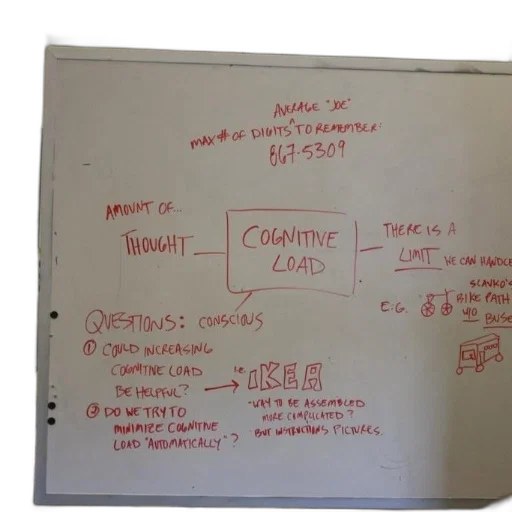 AVERAGE "JOE"
MAX # OF DIGITS ^ TO REMEMBER:
867-5309
AMOUNT OF...
THOUGHT
COGNITIVE
LOAD
THERE IS A
LIMIT WE CAN HANDLE
E.G.
BIKE PATH
W/O
BUSE
QUESTIONS:
CONSCIOUS
① COULD INCREASING
COGNITIVE LOAD
BE HELPFUL?
i.e. IKEA
"WAY TO BE ASSEMBLED
MORE COMPLICATED?
BUT INSTRUCTIONS PICTURES.
② DO WE TRY TO
MINIMIZE COGNITIVE
LOAD "AUTOMATICALLY"?